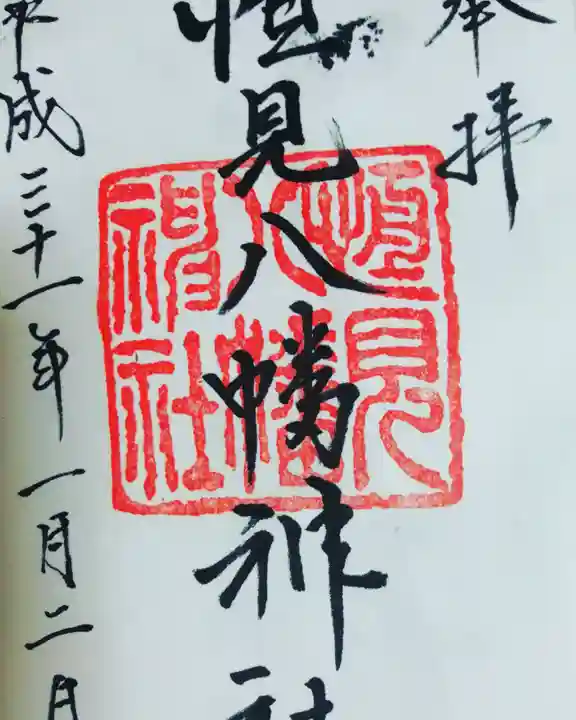 奉拝
恒見八幡神社
平成三十一年一月二日
恒見
八幡
神社